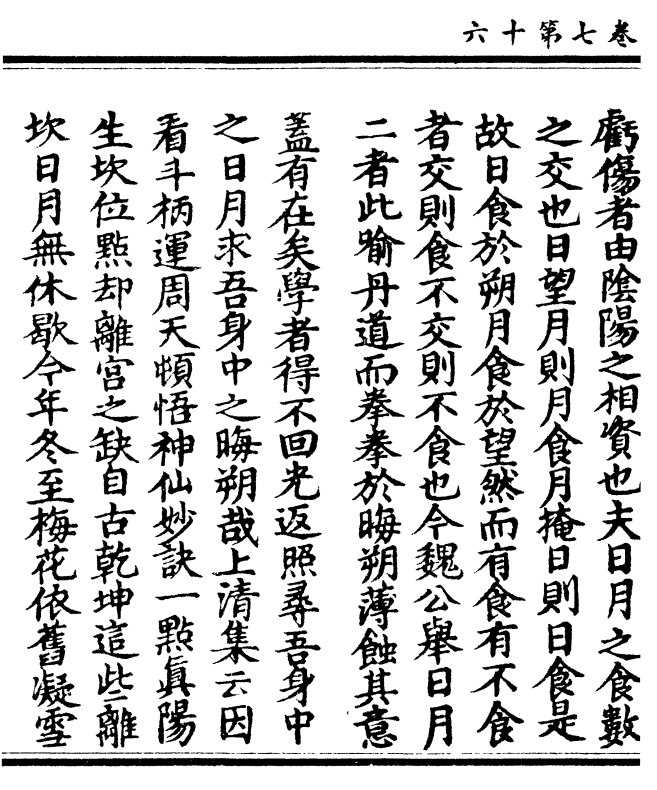 卷七第十六
虧傷者由陰陽之相資也夫日月之食數
之交也日望月則月食月掩日則日食是
故日食於朔月食於望然而有食有不食
者交則食不交則不食也今魏公舉日月
二者此喻丹道而拳拳於晦朔薄蝕其意
蓋有在矣學者得不回光返照尋吾身中
之日月求吾身中之晦朔哉上清集云因
看斗柄運周天頓悟神仙妙訣一點眞陽
生坎位點却離宮之缺自古乾坤這些離
坎日月無休歇今年冬至梅花依舊凝雪